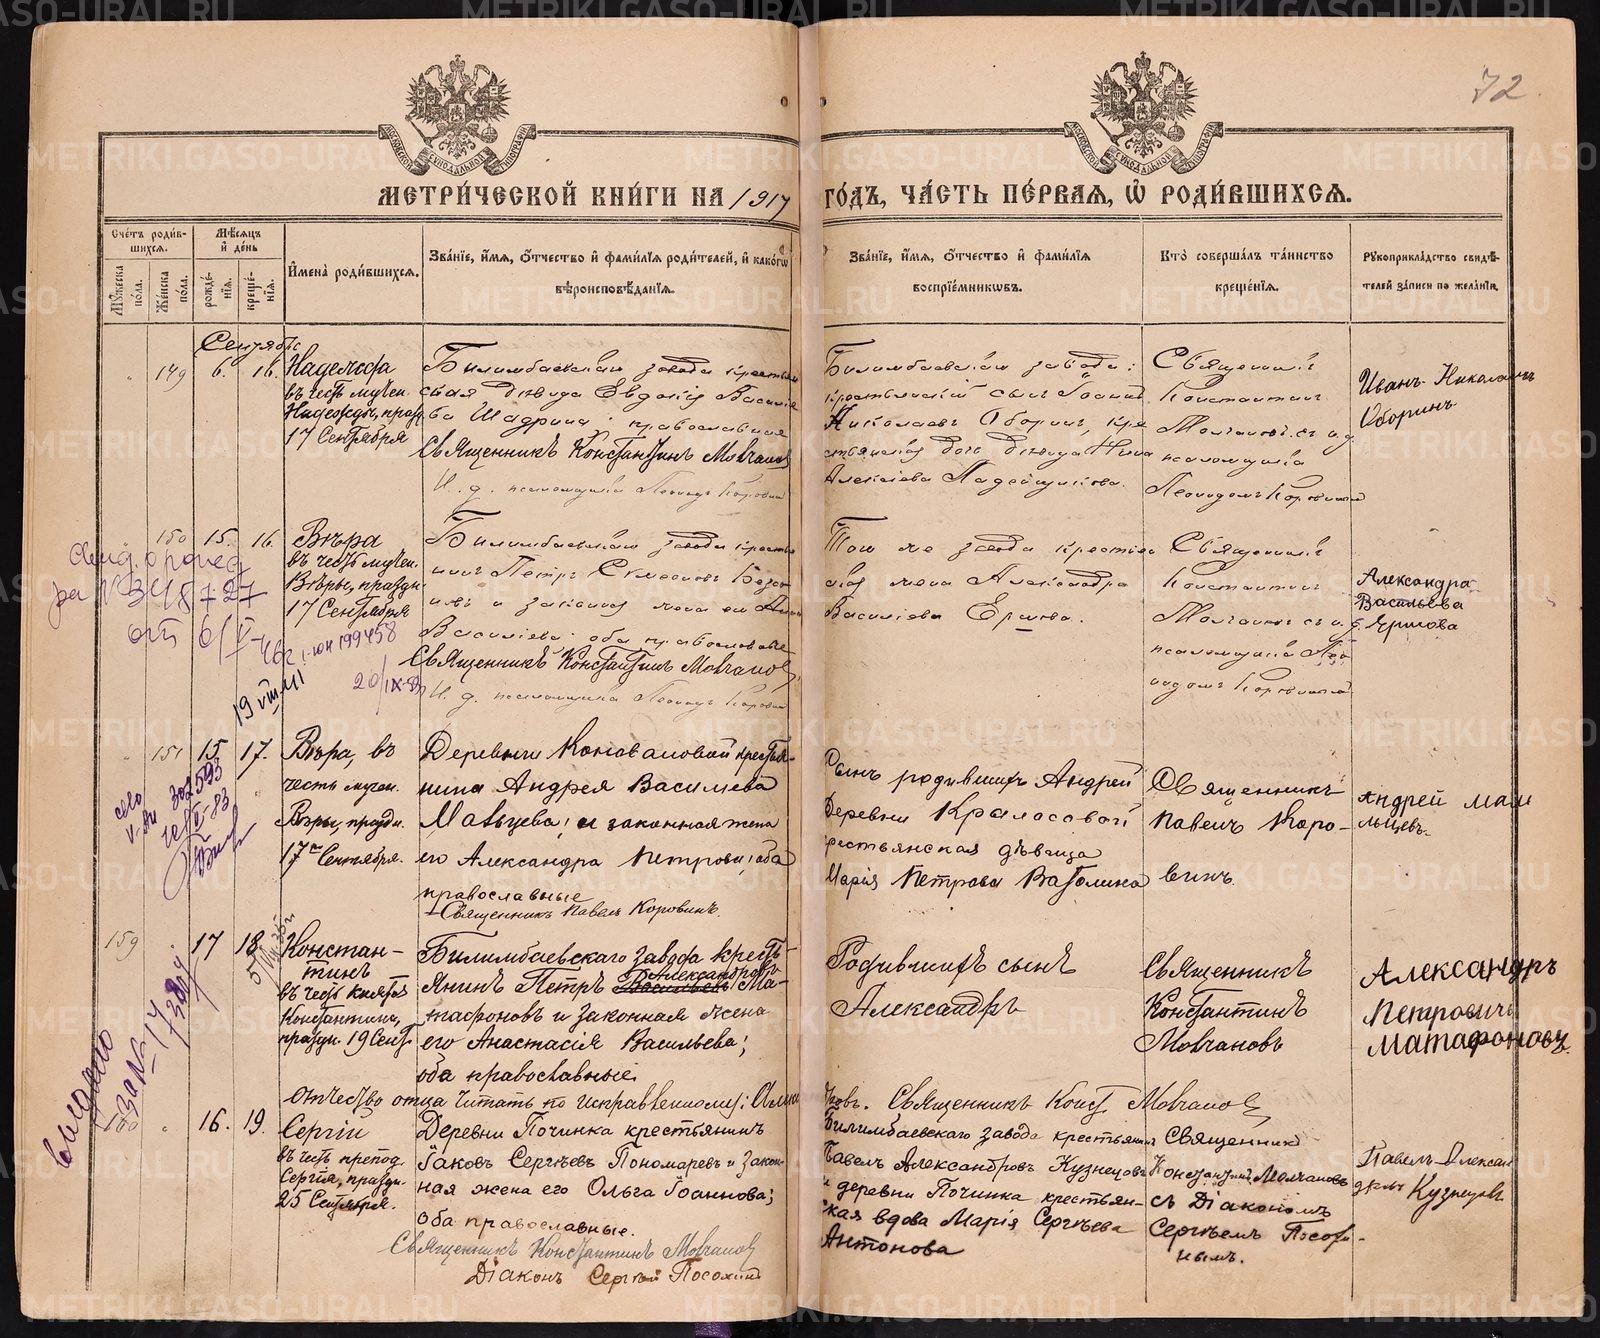 72
МЕТРИ́ЧЕСКОЙ КНИ́ГИ НА 1917 ГО́ДЪ, ЧА́СТЬ ПЕ́РВАѦ, Ѡ҆ РОДИ́ВШИХСѦ.
Сче́тъ роди́в-
шихсѧ.
Мꙋ́жеска
пола.
Же́нска
по́ла.
Мѣ́сѧцъ
и҆ де́нь
рожде́-
нїѧ.
креще́-
нїѧ.
И҆мена̀ роди́вшихсѧ.
Зва́нїе, и҆́мѧ, ѻ҆́тчество и҆ фами́лїѧ роди́телей, и҆ како́гѡ
вѣроисповѣ́данїѧ.
Зва́нїе, и҆́мѧ, ѻ҆́тчество и҆ фами́лїѧ
воспрїе́мникѡвъ.
Кто̀ соверша́лъ та́инство
креще́нїѧ.
Рꙋкоприкла́дство свидѣ́-
телей за́писи по жела́нїю.
Сентябрь
149 6. 16.
Надежда
въ честь мучен.
Надежды, празд.
17 Сентября
Билимбаевскаго завода крестьян
ская дѣвица Евдокія Василіе
ва Шадрина, православная
Священникъ Константинъ Молчановъ
И. д. псаломщика Леонидъ Коровинъ
Билимбаевскаго завода:
крестьянскій сынъ Іоаннъ
Николаевъ Оборинъ, кре
стьянская дочь дѣвица Нина
Алексіева
Священникъ
Константинъ
Молчановъ съ и. д.
псаломщика
Леонидомъ Коровинымъ
Иванъ Николаевъ
Оборинъ
150 15. 16.
Вѣра
въ честь мучен.
Вѣры, праздн.
17 Сентября
Билимбаевскаго завода крестья
нинъ Петръ
и законная жена его
Василіева: оба православные
Священникъ Константинъ Молчановъ
И. д. псаломщика Леонидъ Коровинъ
Того же завода крестьян
ская жена Александра
Василіева Ершова.
Священникъ
Константинъ
Молчановъ съ и. д.
псаломщика Лео
нидомъ Коровинымъ
Александра
Васильева
Ершова
151 15 17.
Вѣра, въ
честь мучен.
Вѣры, праздн.
17го Сентября.
Деревни Коноваловой крестья-
нина Андрея Васильева
Мальцева, и законная жена
его Александра Петрова; оба
православные
Священникъ Павелъ Коровинъ.
Сынъ родившихъ Андрей
Деревни Крыласовой
крестьянская дѣвица
Марія Петрова Ватолина
Священникъ
Павелъ Коро-
винъ.
Андрей Мал
льцевъ.
159 17 18
Констан-
тинъ
въ честь князя
Константина,
праздн. 19 Сент.
Билимбаевскаго завода кресть-
Александровъ
янинъ Петръ Васильевъ Ма-
тафоновъ и законная жена
его Анастасія Васильева;
оба православные.
Родившихъ сынъ
Александръ
Священникъ
Константинъ
Молчановъ
Александръ
Петровичъ
Матафоновъ.
Отчество отца читать по исправленному: Алекса
ндровъ. Священникъ Конст. Молчановъ
160 16. 19.
Сергій
въ честь препод.
Сергія, праздн.
25 Сентября.
Деревни Починка крестьянинъ
Іаковъ Сергѣевъ Пономаревъ и закон-
ная жена его Ольга Іоаннова;
оба православные.
Священникъ Константинъ Молчановъ
Діаконъ Сергій Посохинъ
Билимбаевскаго завода крестьянинъ
Павелъ Александровъ Кузнецовъ
и деревни Починка крестьян-
ская вдова Марія Сергѣева
Антонова
Священникъ
Константинъ Молчановъ
съ Діакономъ
Сергѣемъ Посохи-
нымъ.
Павелъ Алексан
дровъ Кузнецовъ